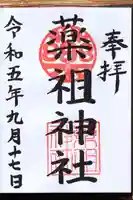 奉拝
薬祖神社
令和五年九月十七日